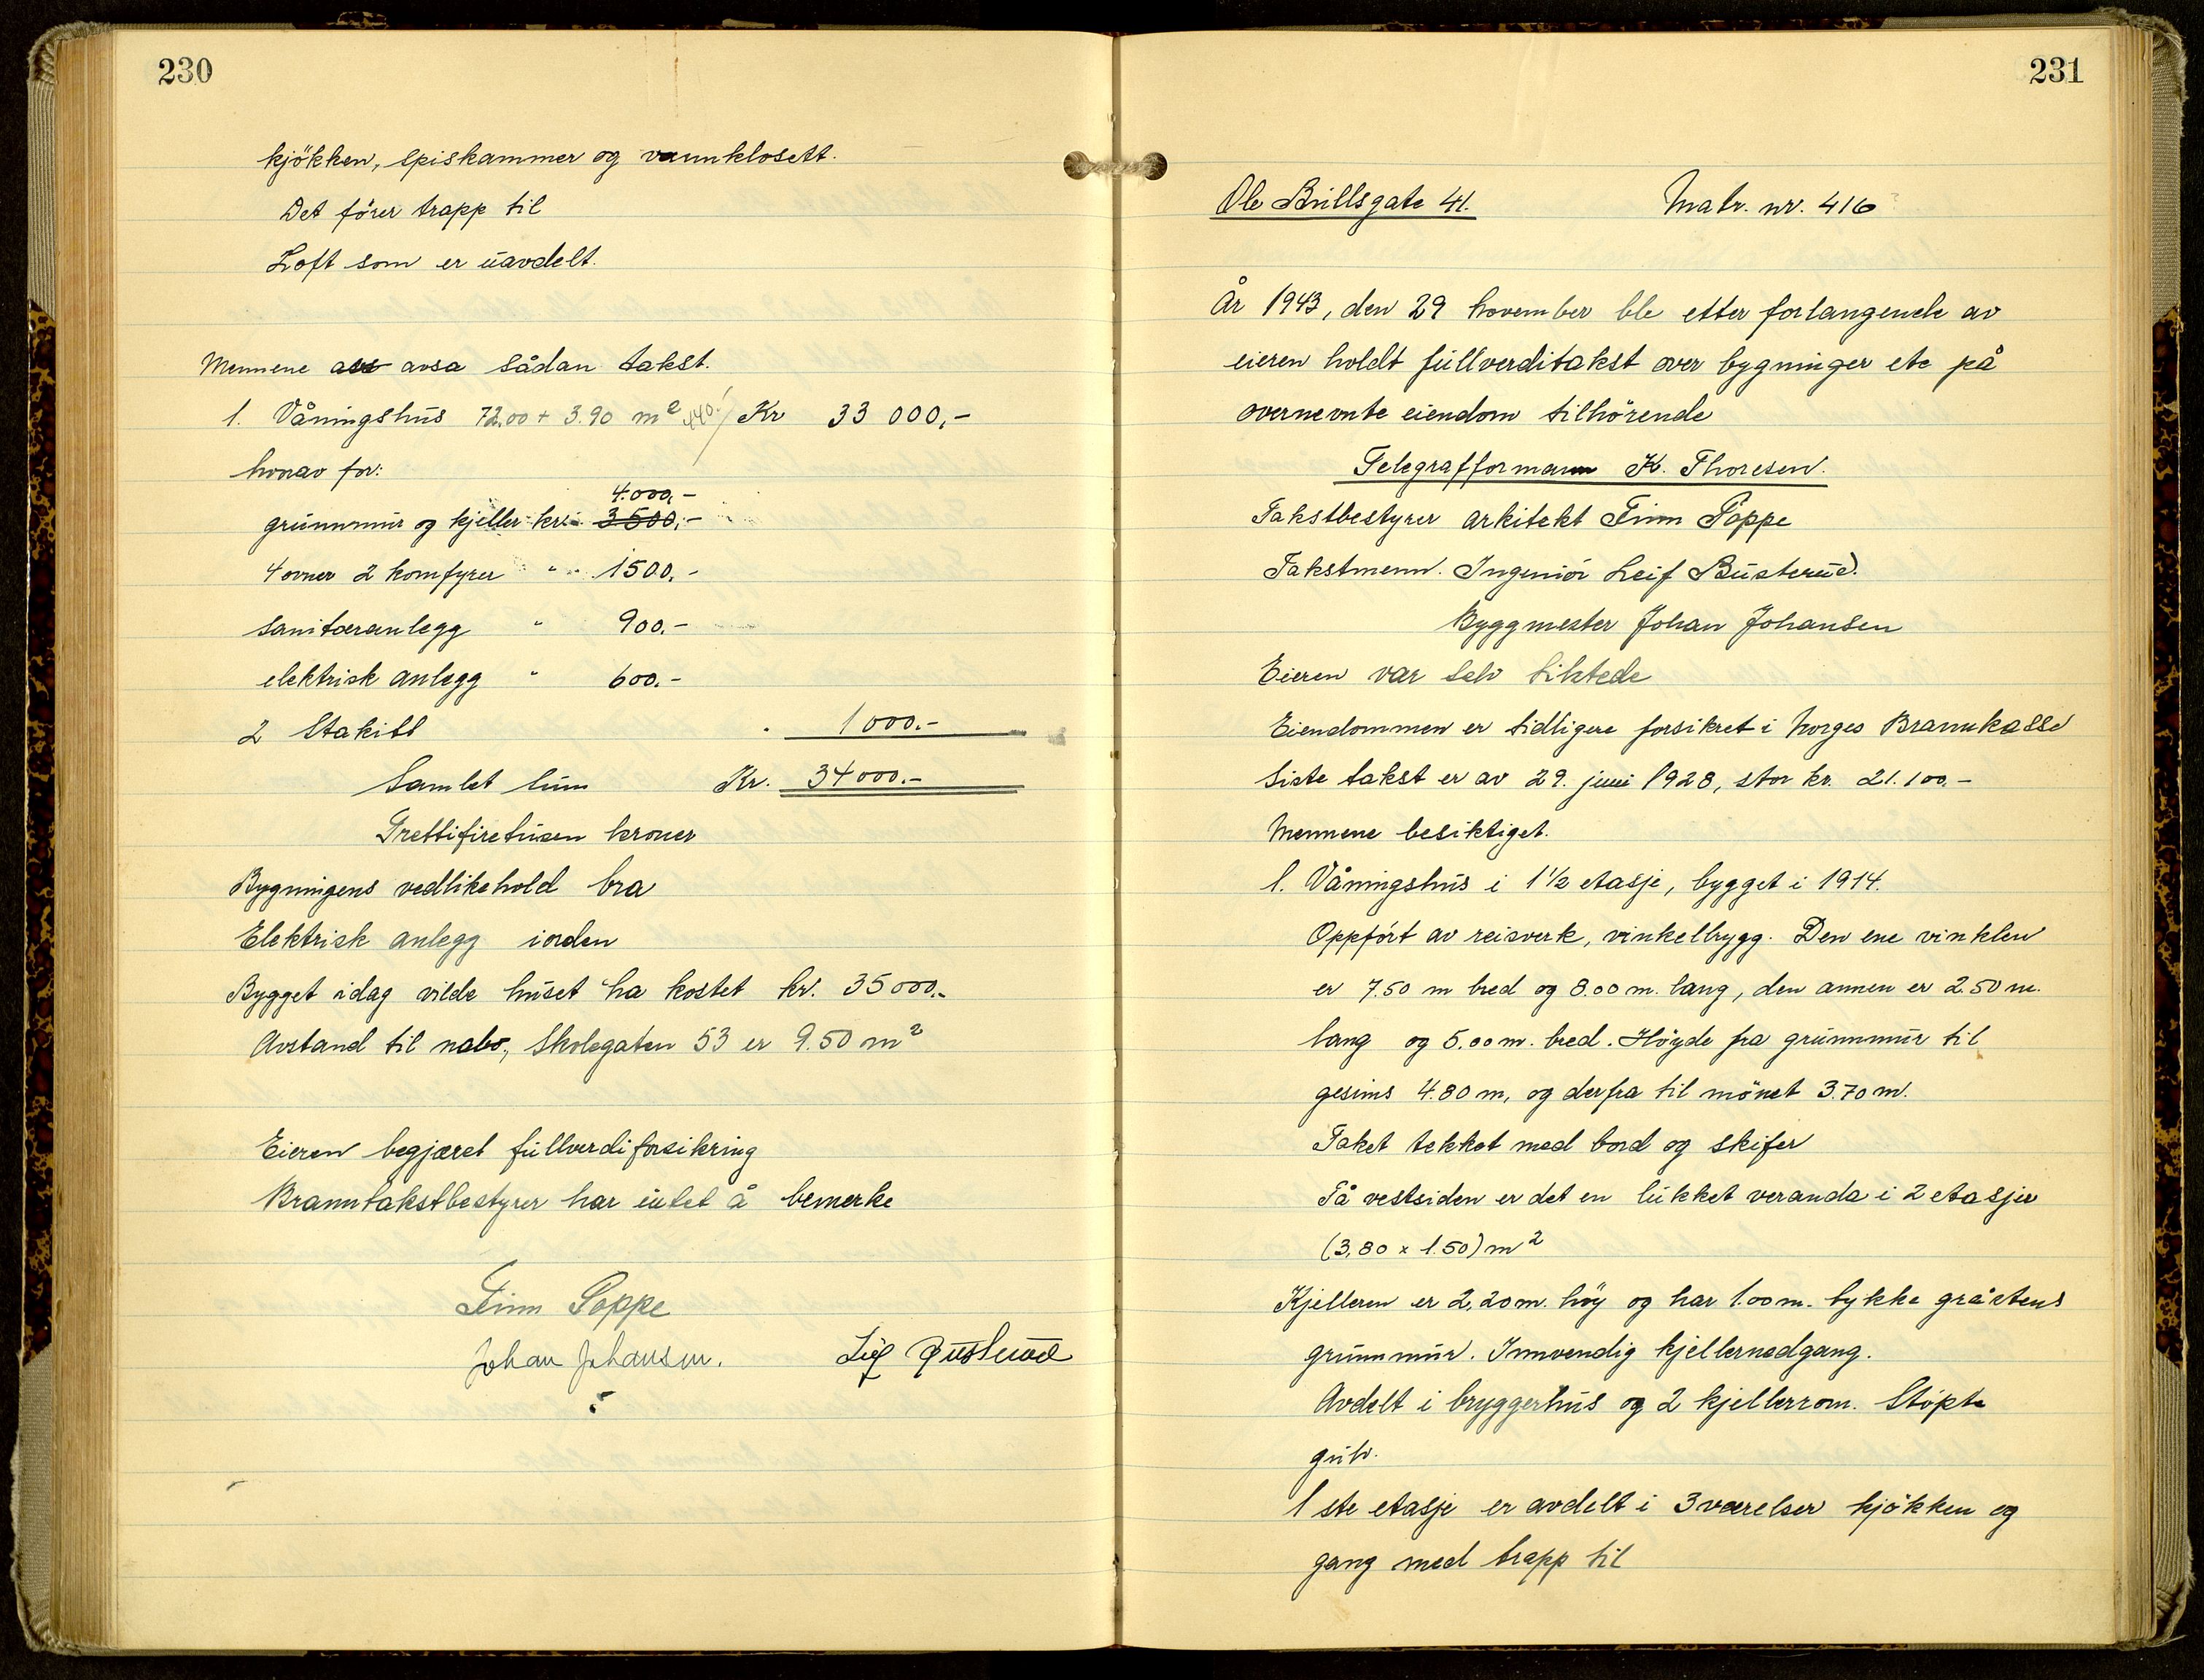 230
kjökken, spiskammer og vannklosett.
Det förer trapp til
Loft som er uavdelt.
Mennene avsa sådan takst.
1. Våningshus 72.00 + 3.90 m² 440.-/ Kr 33 000,-
hvorav for:
4.000,-
grunnmur og kjeller kr. 3500,-
4 ovner 2 komfyrer " 1500.-
sanitæranlegg " 900.-
elektrisk anlegg " 600.-
2 Stakitt " 1000.-
Samlet sum Kr. 34000.-
Trettifiretusen kroner
Bygningens vedlikehold bra
Elektrisk anlegg iorden
Bygget idag vilde huset ha kostet kr. 35000.-
Avstand til nabo, Skolegaten 53 er 9.50 m²
Eieren begjæret fullverdiforsikring
Branntakstbestyrer har intet å bemerke
Finn Poppe
Johan Johansen. Leif Busterud
231
Ole Brillsgate 41. Matr. nr. 416
År 1943, den 29 november ble etter forlangende av
eieren holdt fullverditakst over bygninger etc på
overnevnte eiendom tilhörende
Telegrafformann K. Thoresen.
Takstbestyrer arkitekt Finn Poppe
Takstmenn. Ingeniör Leif Busterud.
Byggmester Johan Johansen
Eieren var selv tilstede
Eiendommen er tidligere forsikret i Norges Brannkasse
Siste takst er av 29. juni 1928, stor kr. 21.100.-
Mennene besiktiget.
1. Våningshus i 1½ etasje, bygget i 1914.
Oppfört av reisverk, vinkelbygg. Den ene vinklen
er 7.50 m bred og 8.00 m. lang, den annen er 2.50 m.
lang og 5.00 m. bred. Höyde fra grunnmur til
gesims 4.80 m, og derfra til mönet 3.70 m.
Taket tekket med bord og skifer
På vestsiden er det en lukket veranda i 2 etasjer
(3,80 x 1.50) m²
Kjelleren er 2,20 m. höy og har 1.00 m. tykke gråstens
grunnmur. Innvendig kjellernedgang.
Avdelt i bryggerhus og 2 kjellerrom. Stöpte
gulv.
1 ste etasje er avdelt i 3 værelser kjökken og
gang med trapp til